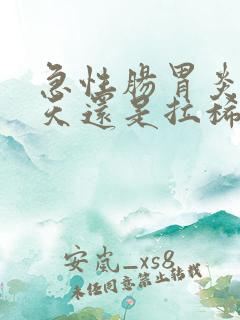 急性腸胃炎
天還是拉稀
安嵐_xs8
未经同意禁止转载